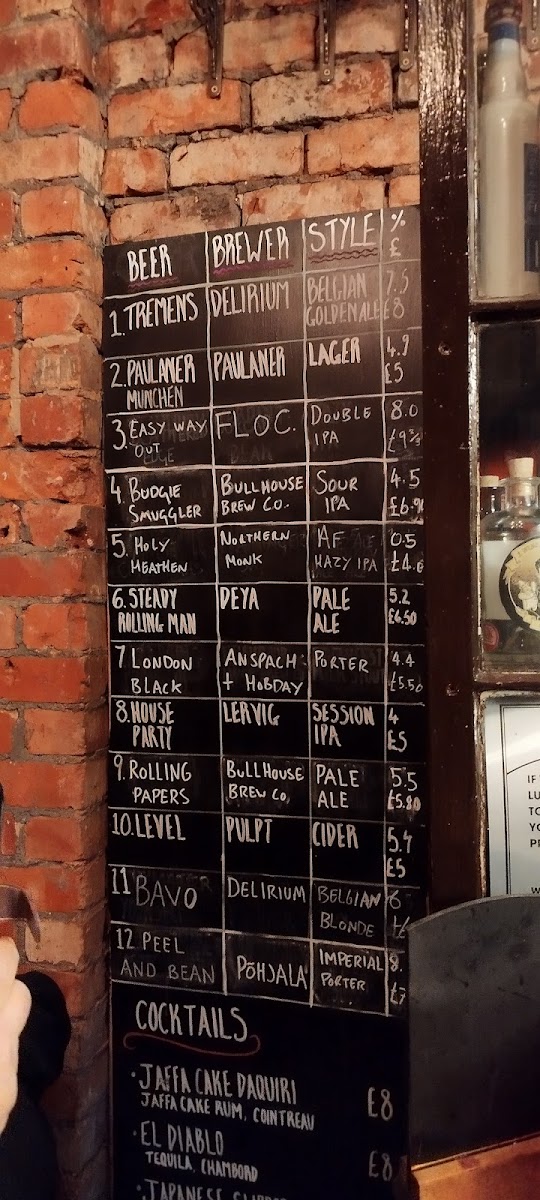 BEER BREWER STYLE % £
1. TREMENS DELIRIUM BELGIAN 7.5
GOLDEN ALE £8
2. PAULANER PAULANER LAGER 4.9
MUNCHEN £5
3. EASY WAY FLOC. DOUBLE 8.0
OUT IPA
4. BUDGIE BULLHOUSE SOUR 4.5
SMUGGLER BREW CO. IPA
5. HOLY NORTHERN AF 0.5
HEATHEN MONK HAZY IPA
6. STEADY DEYA PALE 5.2
ROLLING MAN ALE £6.50
7 LONDON ANSPACH PORTER 4.4
BLACK + HOBDAY £5.50
8. HOUSE LERVIG SESSION 4
PARTY IPA £5
9. ROLLING BULLHOUSE PALE 5.5
PAPERS BREW CO, ALE £5.80
10. LEVEL PULPT CIDER 5.4
£5
11 BAVO DELIRIUM BELGIAN 6
BLONDE
12 PEEL PÕHJALA IMPERIAL 8.
AND BEAN PORTER £7
COCKTAILS
· JAFFA CAKE DAQUIRI £8
JAFFA CAKE RUM, COINTREAU
· EL DIABLO £8
TEQUILA, CHAMBORD
· JAPANESE
IF